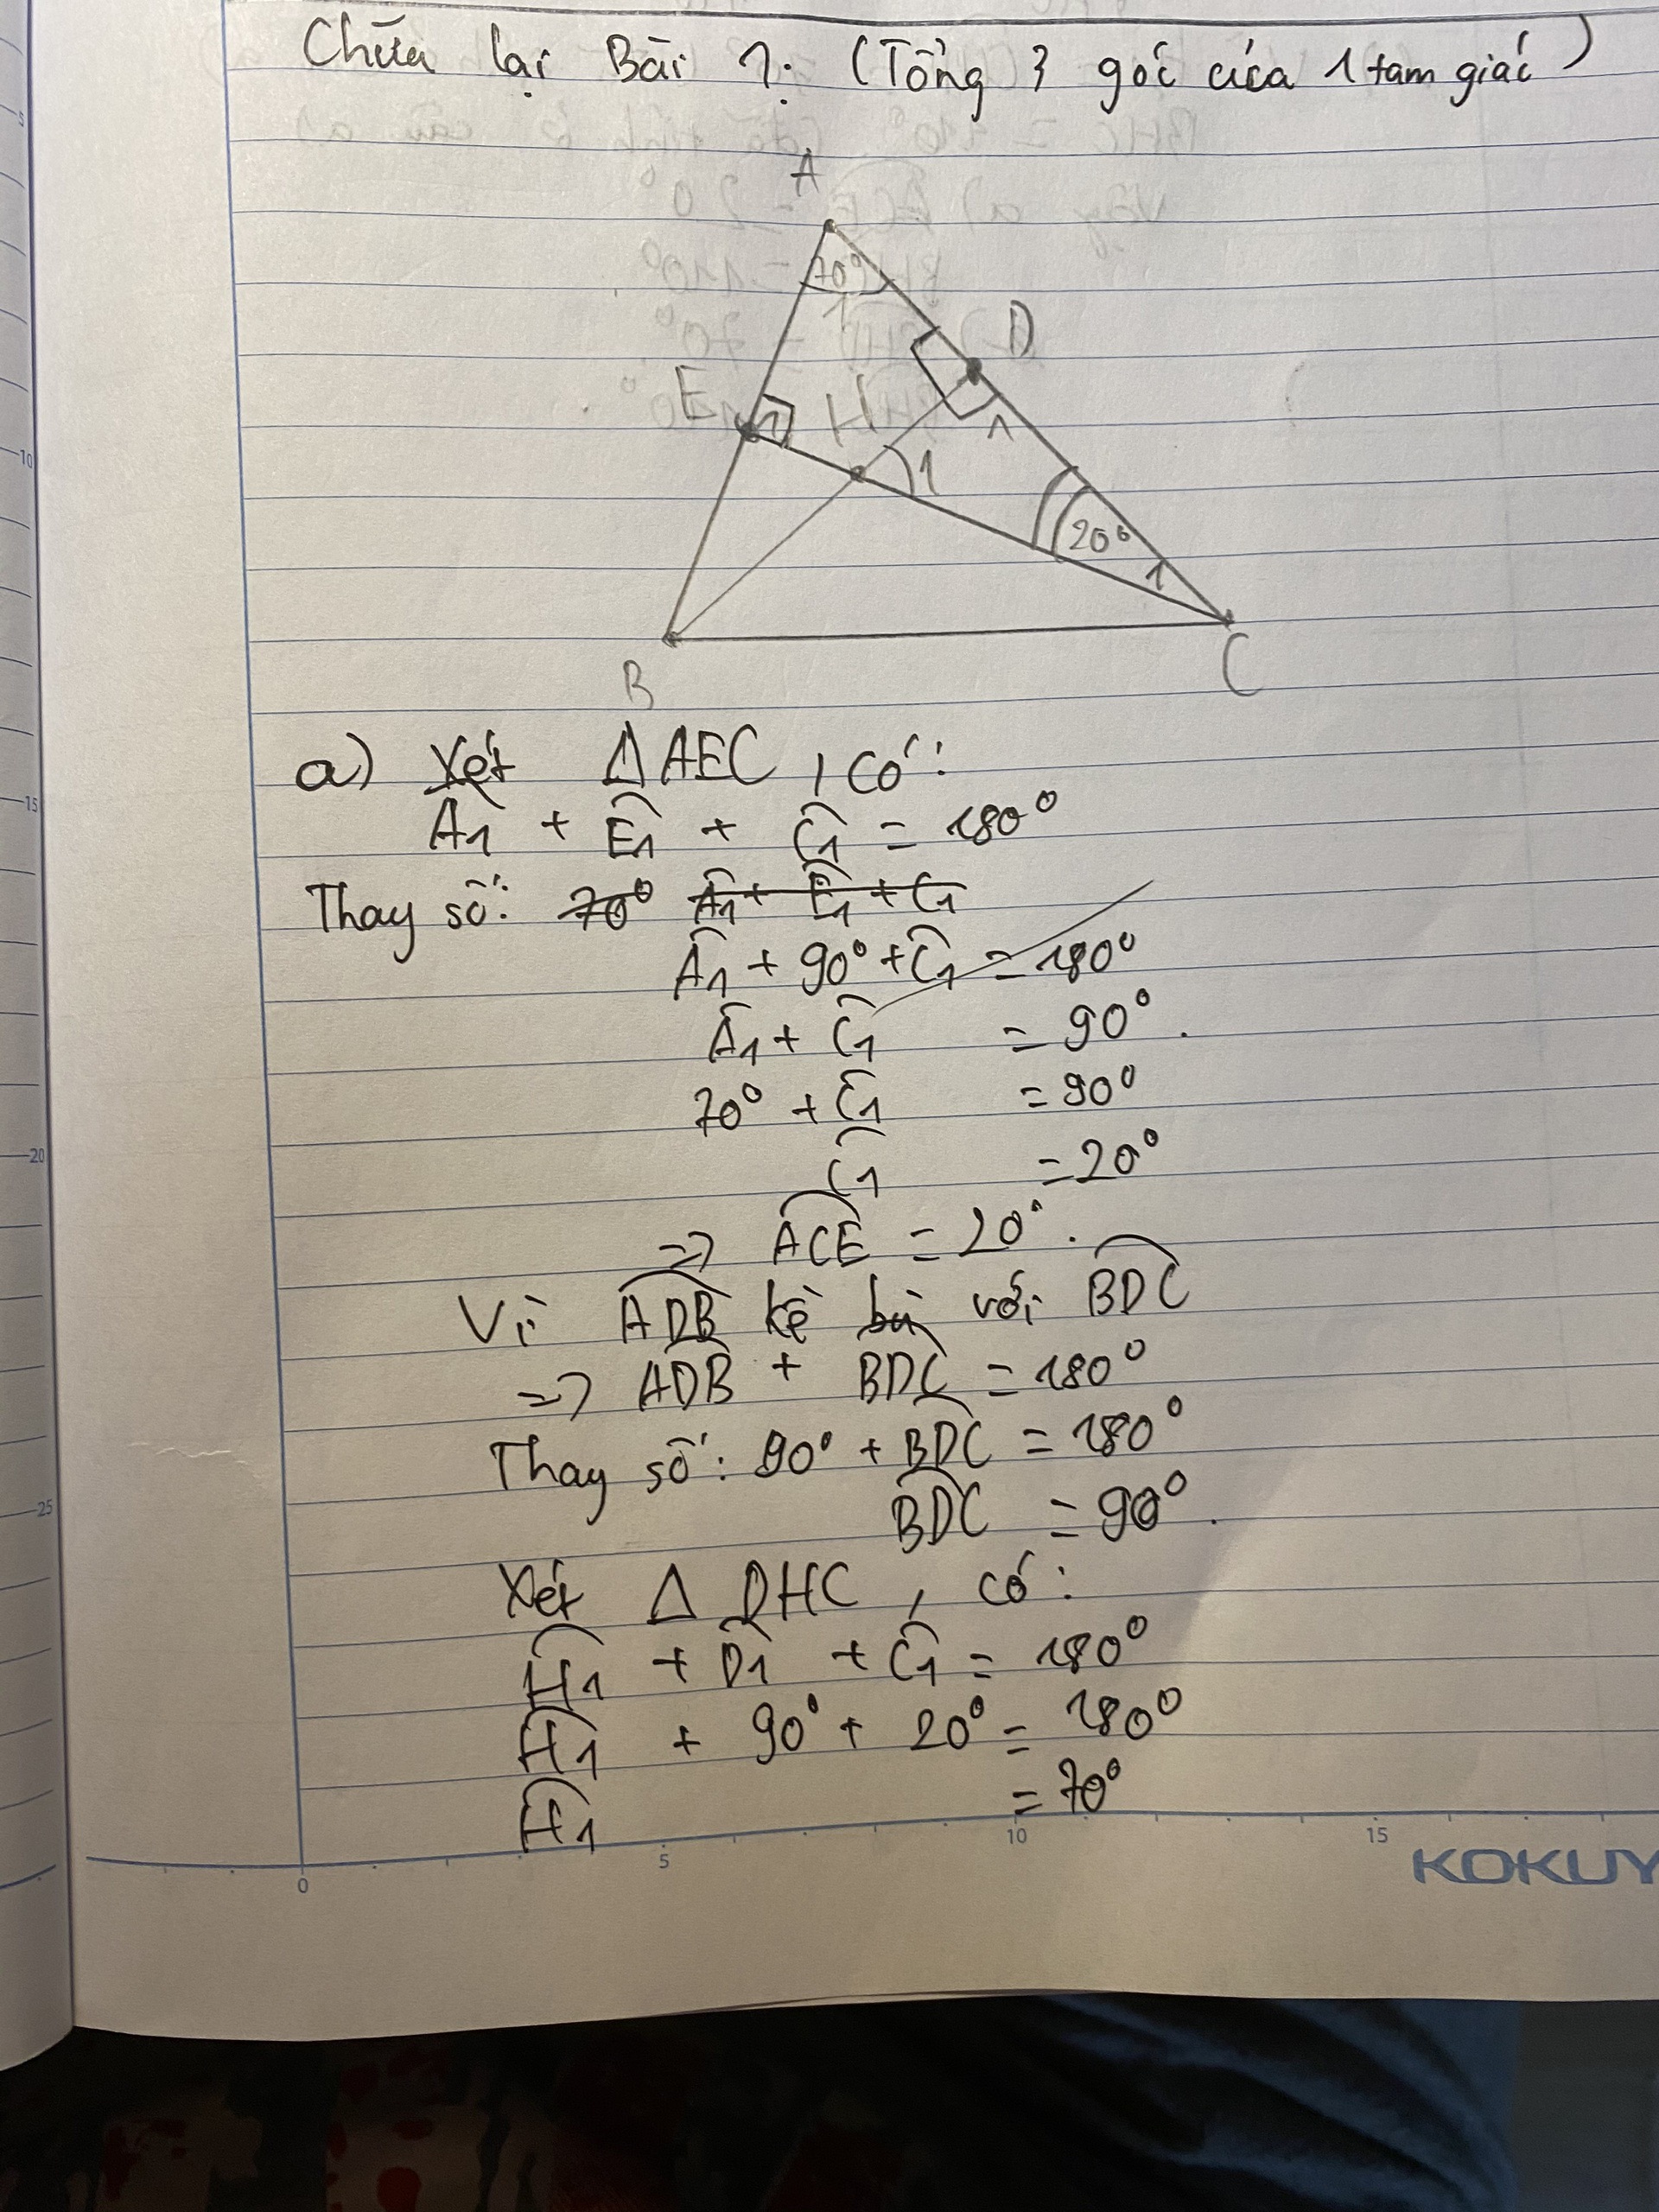 Chữa lại Bài 1: (Tổng 3 góc của 1 tam giác)
A
70°
1
D
E
1
H
1
1
20°
1
B
C
a) Xét ΔAEC, có:
Â1 + Ê1 + Ĉ1 = 180°
Thay số: 70° Â1 + Ê1 + Ĉ1
Â1 + 90° + Ĉ1 = 180°
Â1 + Ĉ1 = 90°.
70° + Ĉ1 = 90°
Ĉ1 = 20°
=> ACE = 20°.
Vì ADB kề bù với BDC
=> ADB + BDC = 180°
Thay số: 90° + BDC = 180°
BDC = 90°.
Xét Δ DHC, có:
Ĥ1 + D̂1 + Ĉ1 = 180°
Ĥ1 + 90° + 20° = 180°
Ĥ1 = 70°
5
10
15
20
25
0
5
10
15
KOKUY